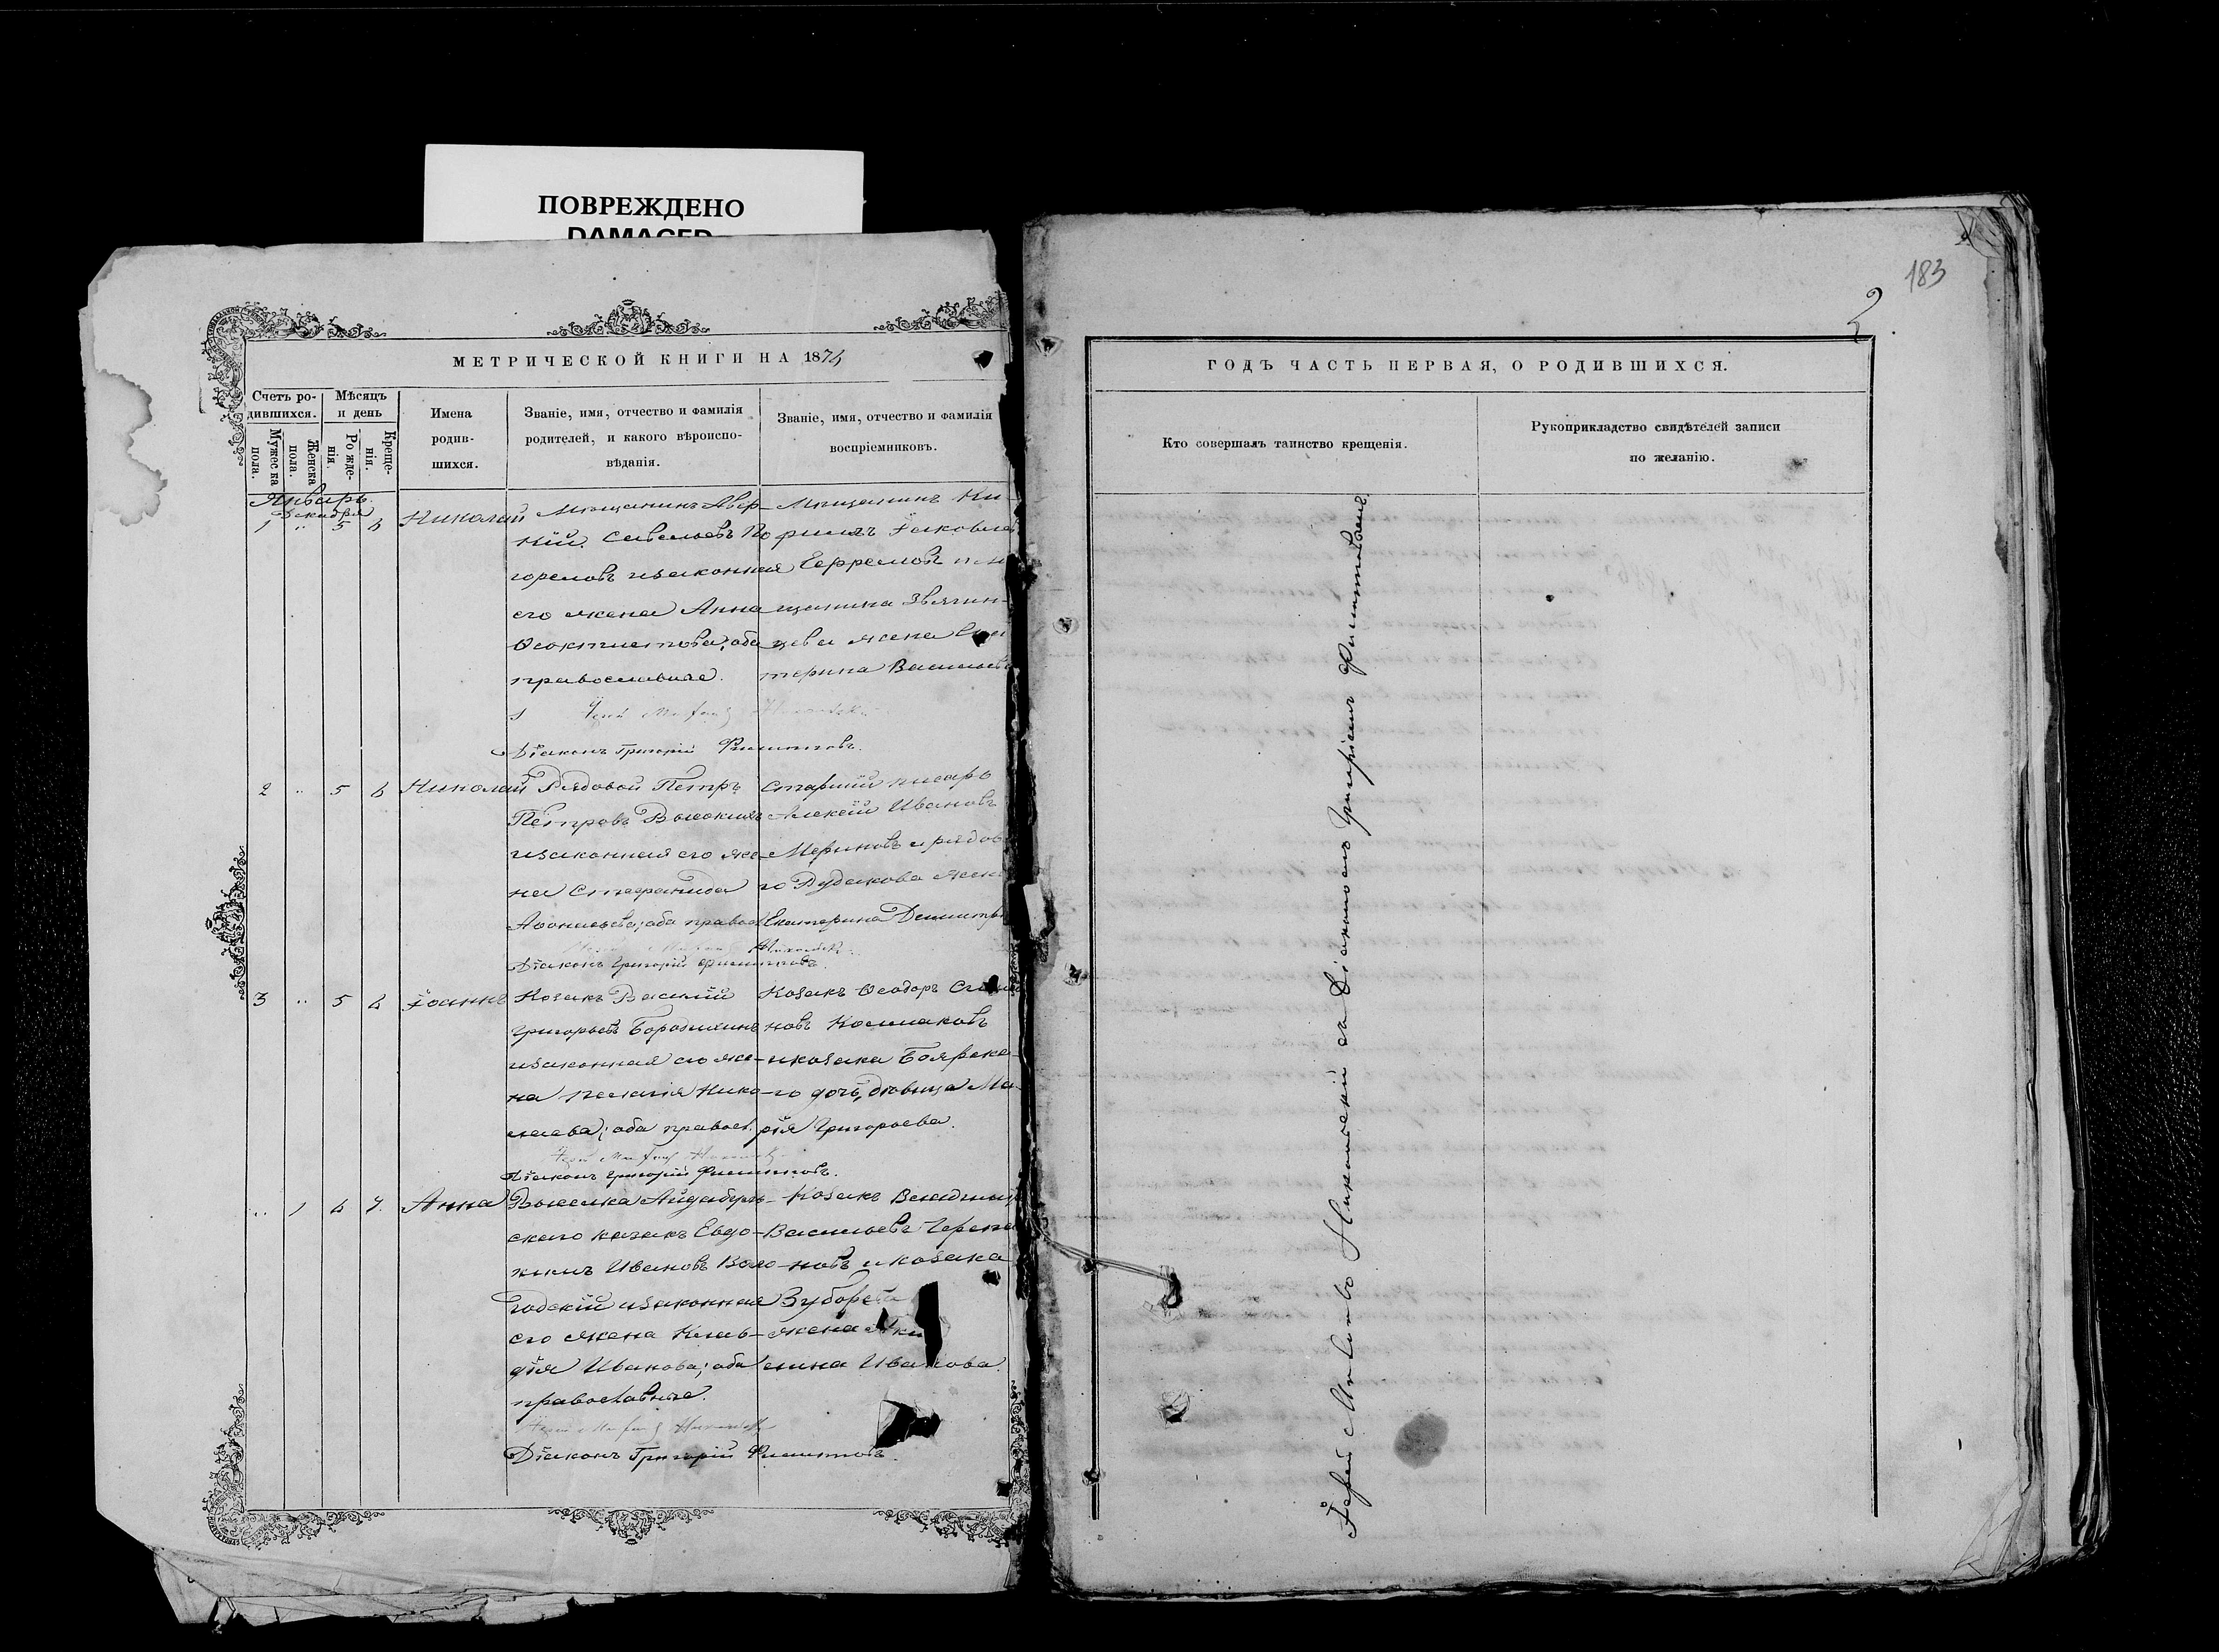 ПОВРЕЖДЕНО
DAMAGED
183
2
МЕТРИЧЕСКОЙ КНИГИ НА 1874
Счетъ ро-
дившихся.
Мужеска
пола.
Женска
пола.
Мѣсяцъ
и день
Рожде-
нія.
Креще-
нія.
Имена
родив-
шихся.
Званіе, имя, отчество и фамилія
родителей, и какого вѣроиспо-
вѣданія.
Званіе, имя, отчество и фамилія
воспріемниковъ.
Январь
Декабря
1 " 5 6 Николай
Мѣщанинъ Авер-
кій Савельевъ По
гореловъ изаконная
его жена Анна
Ѳеоктистова; оба
православные.
Мѣщанинъ Ки-
риллъ Іаковлев
Ефремовъ и м
щанина Звягин-
цева жена Ека
терина Васильев
Діаконъ Григорій Филипповъ.
2 " 5 6 Николай
Рядовой Петръ
Петровъ
изаконная его же-
на Стефанида
оба правос
Старшій писарь
Алексѣй Ивановъ
Мериновъ и рядов
го Рудакова жена
Екатерина Димитр
Діаконъ Григорій Филипповъ.
3 " 5 6 Іоаннъ
Козакъ Василій
Григорьевъ Бородихинъ
изаконная его же-
на Пелагія Нико-
лаева; оба правос.
Козакъ Ѳеодоръ
новъ Колмаковъ
икозака Боярска-
го дочь, дѣвица Ма-
рія Григорьева.
Діаконъ Григорій Филипповъ.
" 1 6 7. Анна
Выселка Айдабуль-
скаго казакъ Евдо-
кимъ Ивановъ Воло-
годскій изаконная
его жена Клав-
дія Иванова; оба
православные.
Козакъ
Васильевъ Черепа
новъ и козака
Зубарева
жена Аки
лина Иванова.
Діаконъ Григорій Филипповъ.
ГОДЪ ЧАСТЬ ПЕРВАЯ, О РОДИВШИХСЯ.
Кто совершалъ таинство крещенія.
Рукоприкладство свидѣтелей записи
по желанію.
Іерей Никольскій съ Діакономъ Григоріемъ Филипповымъ.